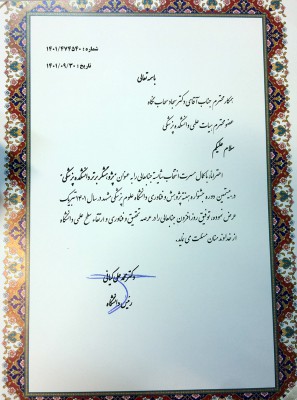 شماره : ۱۴۰۱/۴۷۴۵۴۰
تاریخ : ۱۴۰۱/۰۹/۳۰
باسمه تعالی
همکار محترم جناب آقای دکتر سجاد سحاب نگاه
عضو محترم هیات علمی دانشکده پزشکی
سلام علیکم
احتراما، با کمال مسرت انتخاب شایسته جنابعالی را به عنوان "پژوهشگر برتر دانشکده پزشکی"
در دوره جشنواره هفته پژوهش و فناوری دانشگاه علوم پزشکی مشهد در سال ۱۴۰۱ تبریک
عرض نموده، توفیق روزافزون جنابعالی را در عرصه تحقیق و فناوری و ارتقاء سطح علمی دانشگاه
از خداوند منان مسئلت می نماید.
دکتر محمد علی کیانی
رئیس دانشگاه